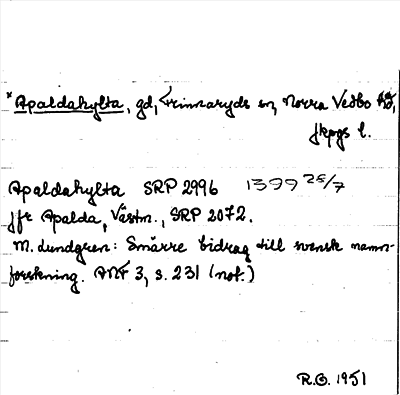 *Apaldahylta, gd, Linnaryds sn, Norra Vedbo hd,
Jkpgs l.
Apaldahylta SRP 2996 1399 28/7
jfr Apalda, Västm., SRP 2072.
M. Lundgren: Smärre bidrag till svensk namn-
forskning. ANF 3, s. 231 (not.)
R.O. 1951